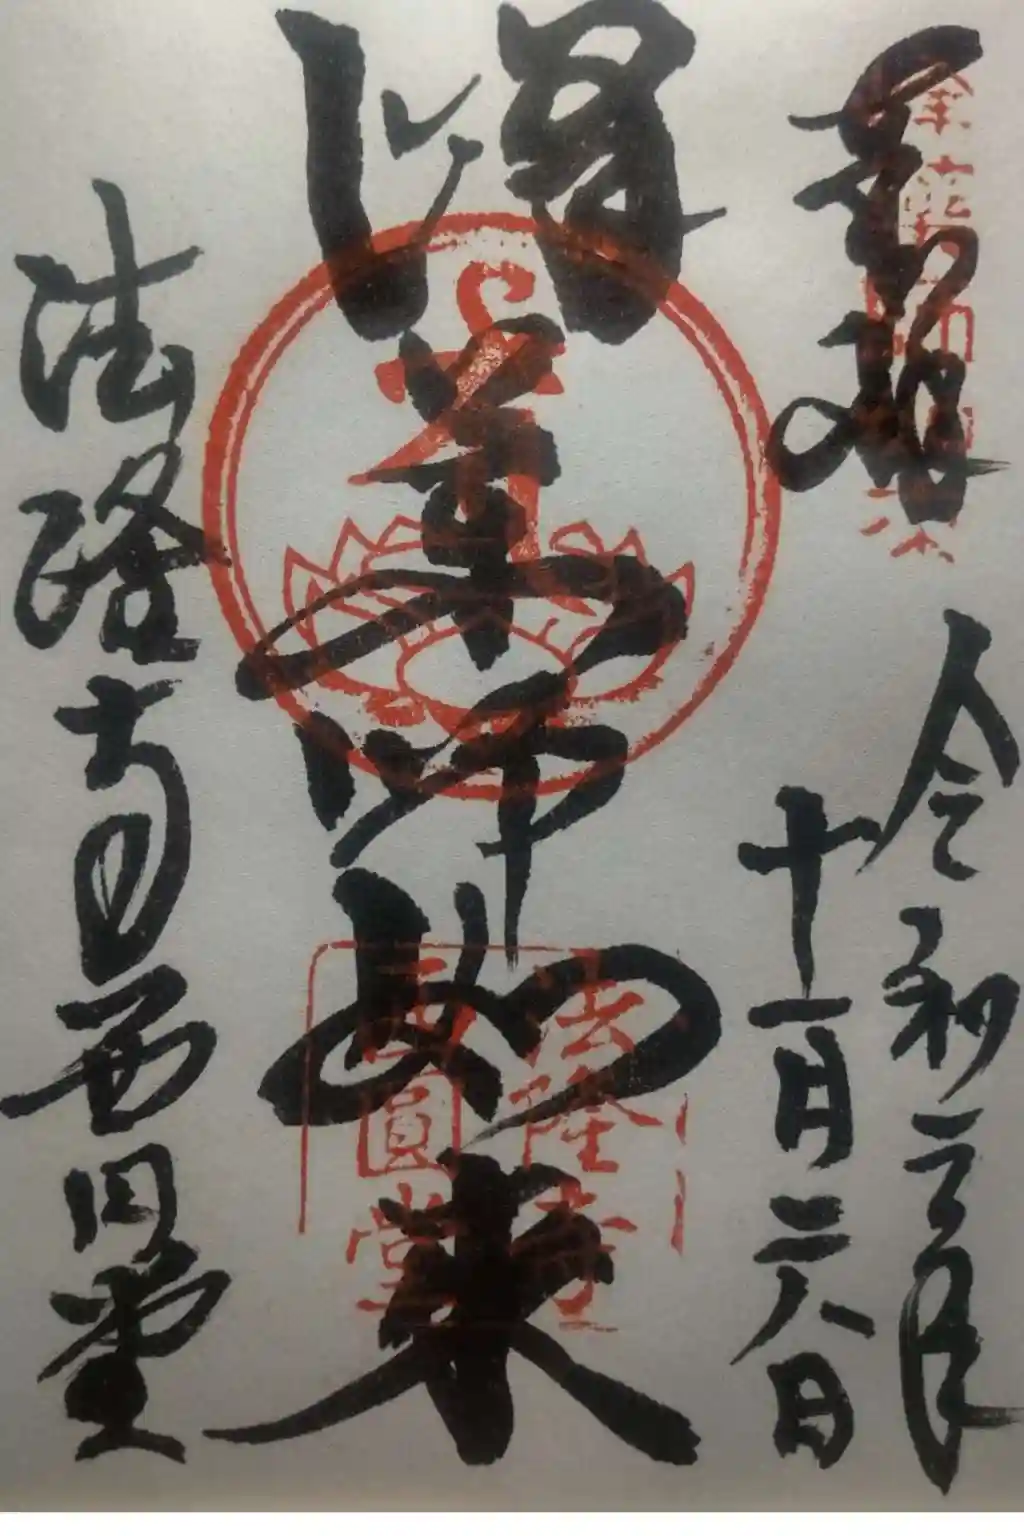 奉拝
令和元年
十一月二八日
薬師如来
法隆寺西円堂
法隆寺
西圓堂